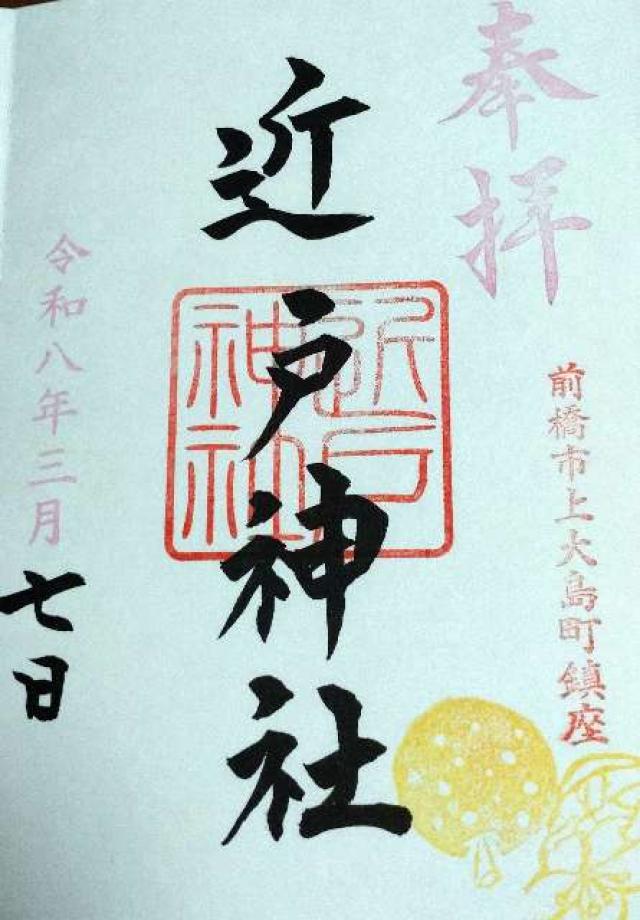 奉拝
前橋市上大島町鎮座
近戸神社
近戸神社
令和八年三月
七日